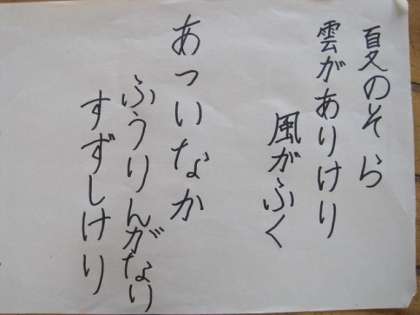 夏のそら
雲がありけり
風がふく
あついなか
ふうりんがなり
すずしけり